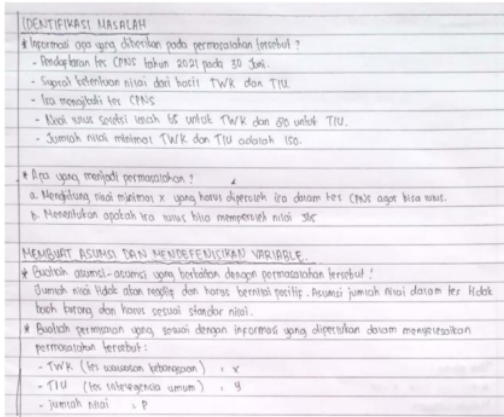 IDENTIFIKASI MASALAH
* Informasi apa yang diberikan pada permasalahan tersebut ?
- Pendaftaran tes CPNS tahun 2021 pada 30 Juni.
- Syarat ketentuan nilai dari hasil TWK dan TIU.
- Ira mengikuti tes CPNS
- Nilai lulus seleksi ialah 65 untuk TWK dan 80 untuk TIU.
- Jumlah nilai minimal TWK dan TIU adalah 150.
* Apa yang menjadi permasalahan ?
a. Menghitung nilai minimal x yang harus diperoleh ira dalam tes CPNS agar bisa lulus.
b. Menentukan apakah ira lulus bila memperoleh nilai
MEMBUAT ASUMSI DAN MENDEFENISIKAN VARIABLE.
* Buatlah asumsi-asumsi yang berkaitan dengan permasalahan tersebut !
Jumlah nilai tidak akan negatif dan harus bernilai positif. Asumsi jumlah nilai dalam tes tidak
boleh kurang dan harus sesuai standar nilai.
* Buatlah permisalan yang sesuai dengan informasi yang diperlukan dalam menyelesaikan
permasalahan tersebut :
- TWK (tes wawasan kebangsaan) : x
- TIU (tes intelegencia umum) : y
- jumlah nilai : p